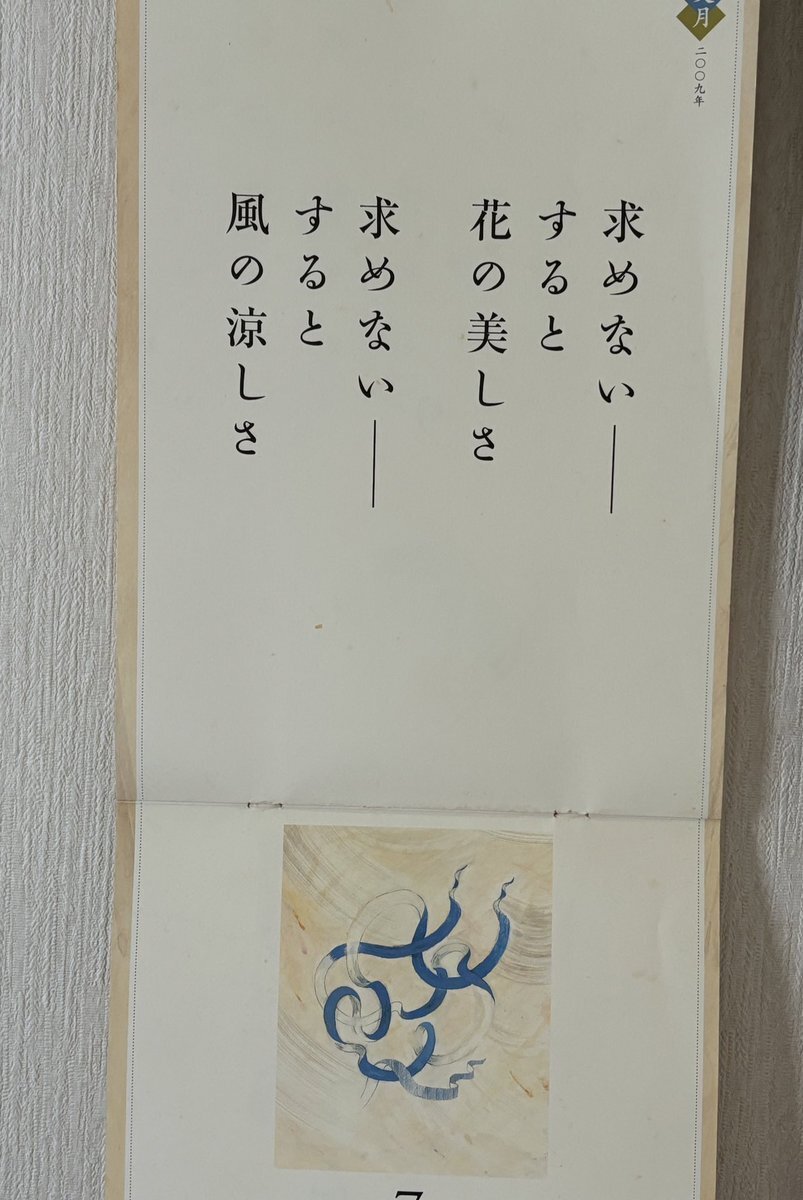 月
二〇〇九年
求めない――
すると
花の美しさ
求めない――
すると
風の涼しさ